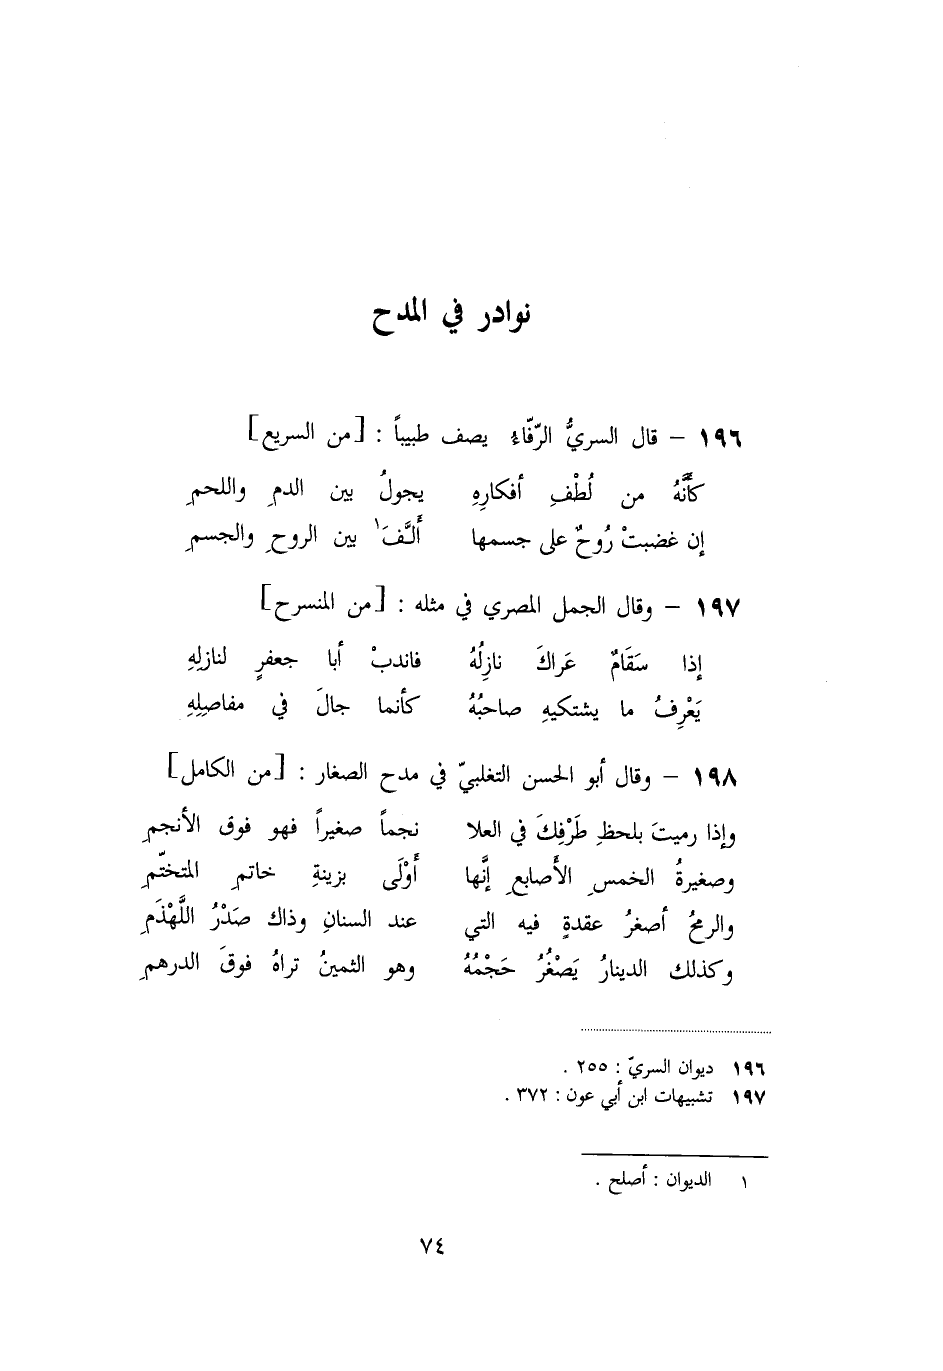 نوادر في المدح
١٩٦ – قال السريُّ الرّفّاء يصف طبيباً : [من السريع]
كأنَّهُ من لُطْفِ أفكارِهِ يجولُ بين الدمِ واللحمِ
إن غضبتْ رُوحٌ على جسمها أَلَّفَ١ بين الروحِ والجسمِ
١٩٧ – وقال الجمل المصري في مثله : [من المنسرح]
إذا سَقَامٌ عَراكَ نازِلُهُ فاندبْ أبا جعفرٍ لنازلِهِ
يَعْرِفُ ما يشتكيهِ صاحبُهُ كأنما جالَ في مفاصِلِهِ
١٩٨ – وقال أبو الحسن التغلبيّ في مدح الصغار : [من الكامل]
وإذا رميتَ بلحظِ طَرْفِكَ في العلا نجماً صغيراً فهو فوق الأنجمِ
وصغيرةُ الخمسِ الأَصابعِ إنَّها أَوْلَى بزينةِ خاتمِ المتختّمِ
والرمحُ أصغرُ عقدةٍ فيه التي عند السنانِ وذاك صَدْرُ اللَّهْذَمِ
وكذلك الدينارُ يَصْغُرُ حَجْمُهُ وهو الثمينُ تراهُ فوقَ الدرهمِ
١٩٦ ديوان السريّ : ٢٥٥ .
١٩٧ تشبيهات ابن أبي عون : ٣٧٢ .
١ الديوان : أصلح .
٧٤